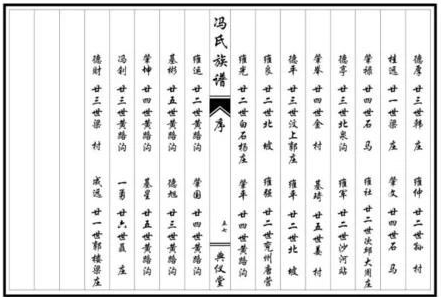 德厚 廿三世韩 庄 维仲 廿二世孙 村
桂远 廿一世梁 庄 荣文 廿四世石 马
荣禄 廿四世石 马 维社 廿二世次邱大周庄
德亭 廿三世北泉沟 维军 廿二世沙河站
荣举 廿四世金 村 基琦 廿五世姜 村
德平 廿三世汶上郭庄 维平 廿二世北 坡
维良 廿二世北 坡 维强 廿二世兖州唐营
维光 廿二世白石杨庄 荣平 廿四世黄路沟
冯氏族谱 序 五七 典仪堂
维运 廿二世黄路沟 荣国 廿四世黄路沟
基彬 廿五世黄路沟 德旭 廿三世黄路沟
荣坤 廿四世黄路沟 基星 廿五世黄路沟
冯钊 廿三世黄路沟 一勇 廿六世聂 庄
德财 廿三世梁 村 成远 廿一世郭楼梁庄